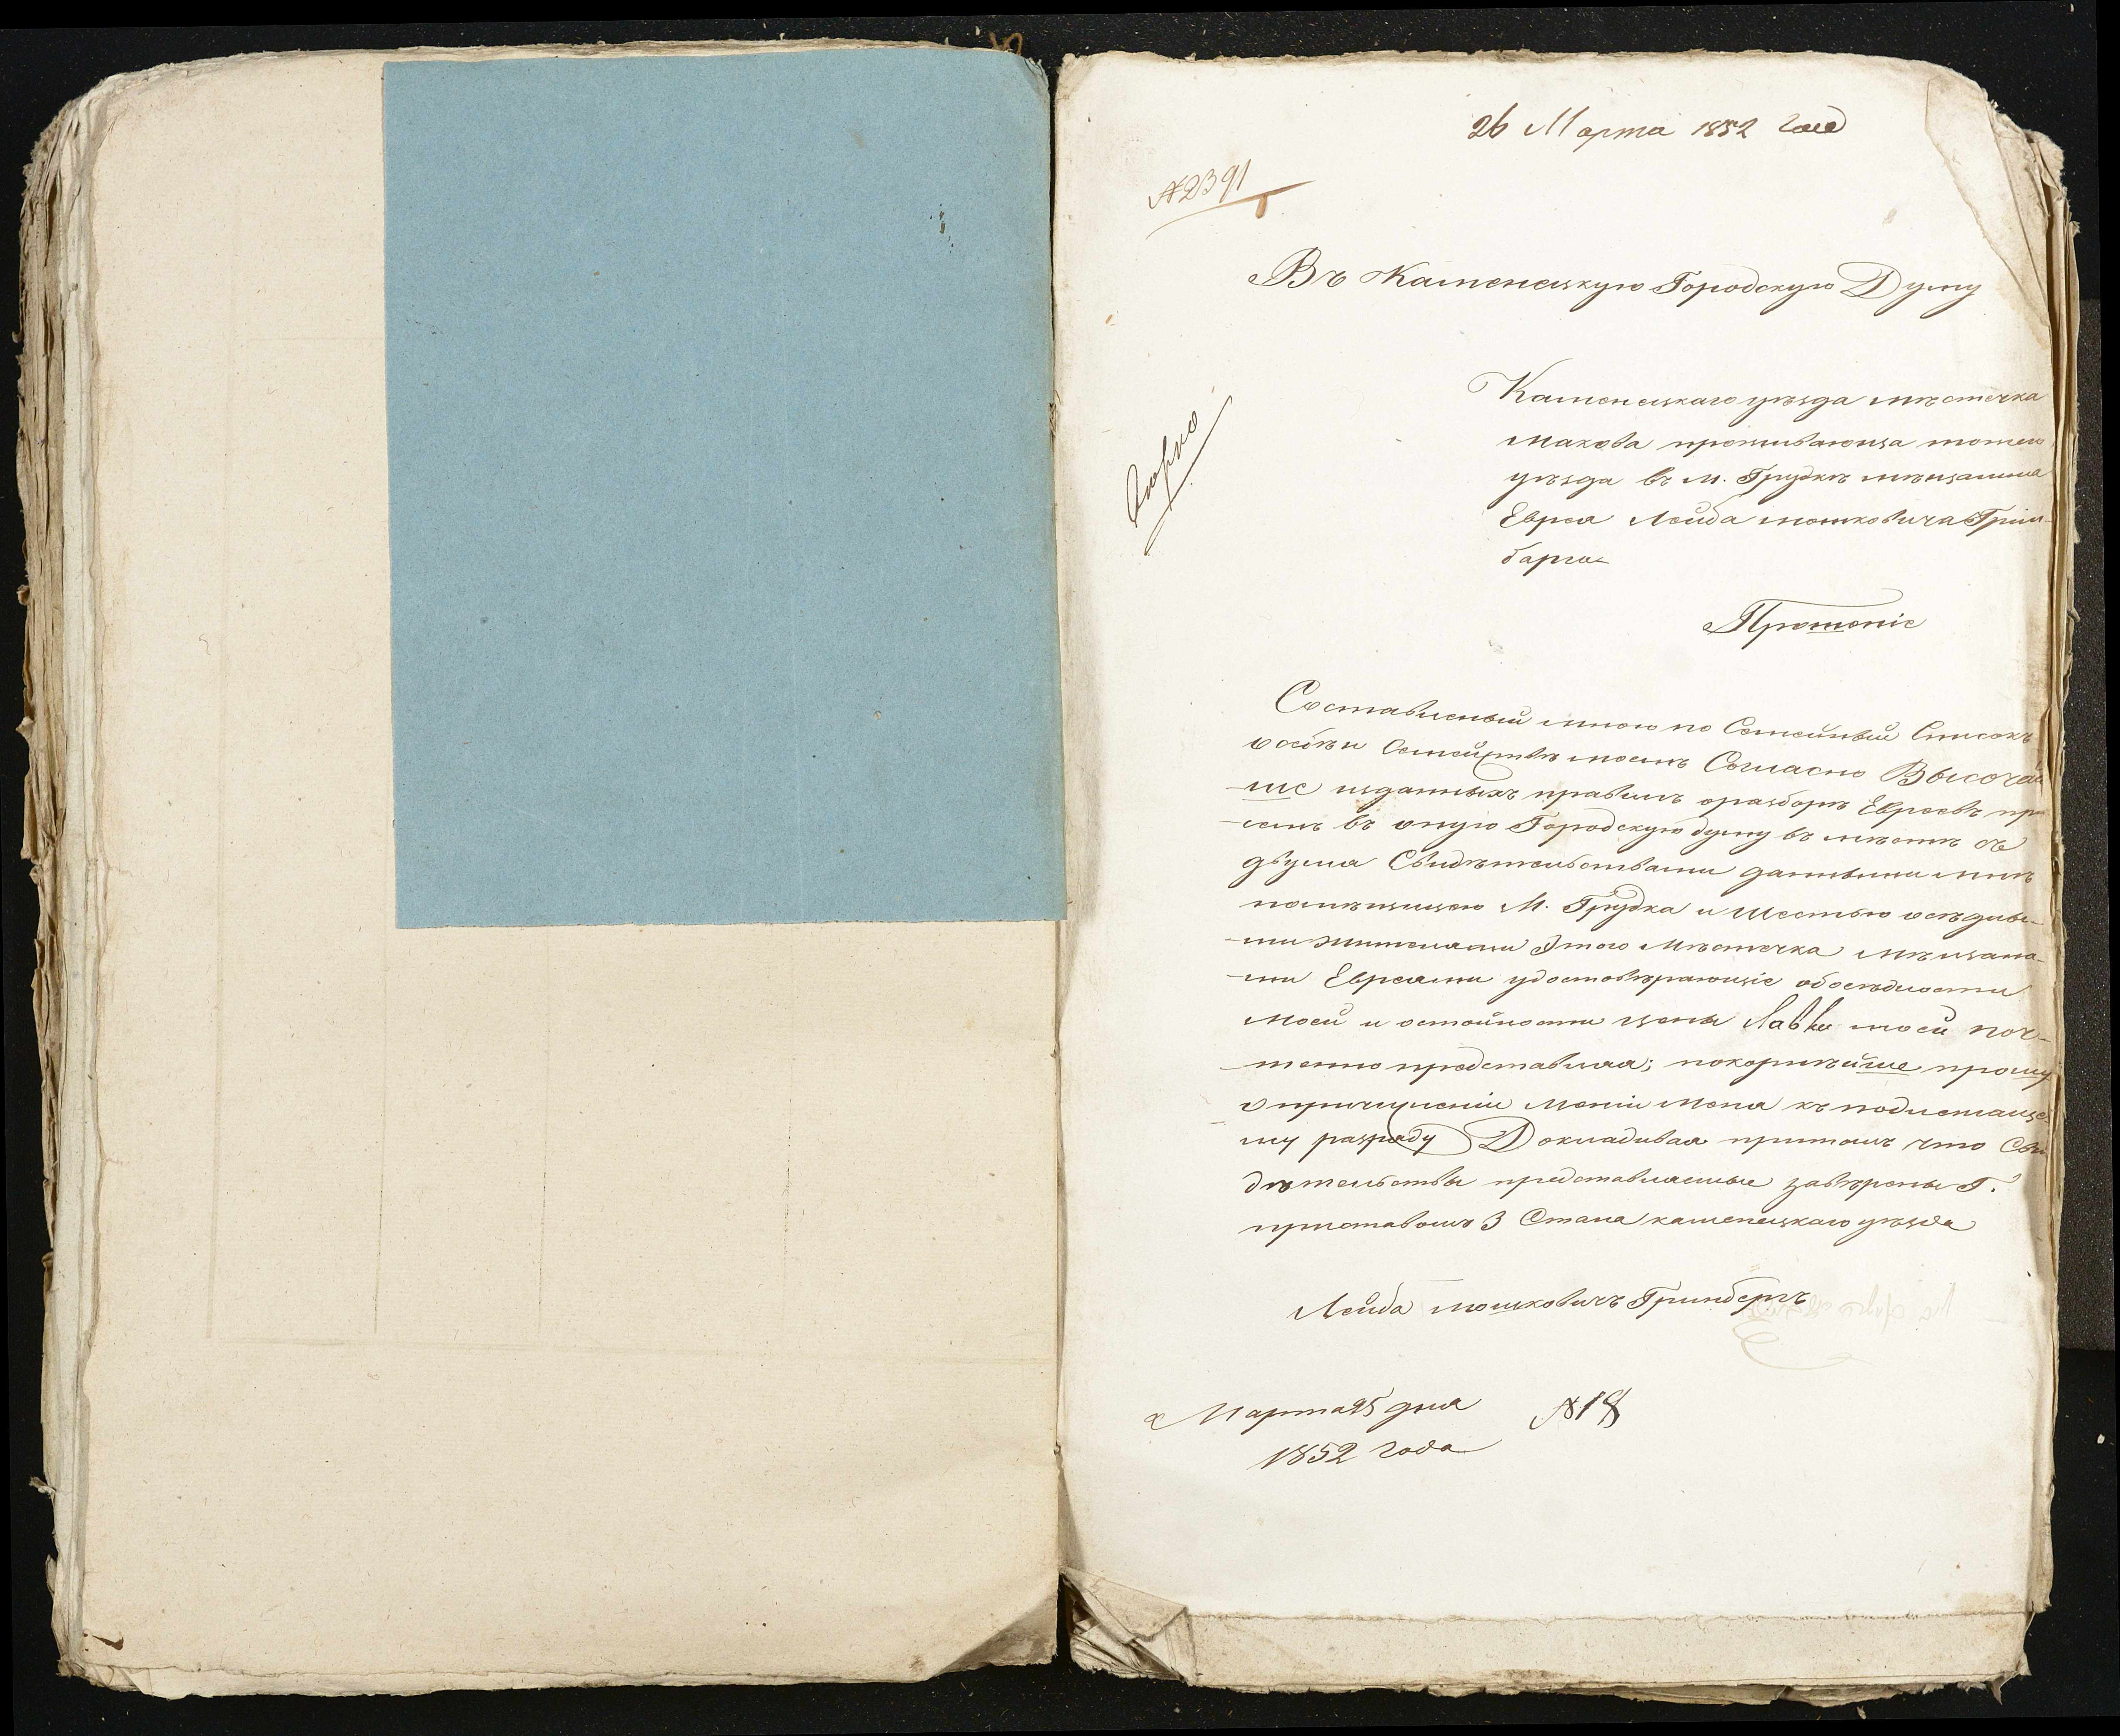 26 Марта 1852 года
№2391
Въ Каменецкую Городскую Думу
Каменецкаго уѣзда мѣстечка
Макова проживающа тогоже
уѣзда въ М. Грудкѣ мѣщанина
Еврея Лейба Мошковича Грин-
барга
Прошеніе
Составленый мною по Семейный Списокъ
о себѣ и Семействѣ моемъ Согласно Высочай
-ше изданныхъ правилъ о разборѣ Евреевъ при
-семъ въ оную Городскую думу въ мѣстѣ съ
двума Свидѣтельствами данными мнѣ
помѣщицею М. Грудка и шестью осѣдлы-
-ми жителами Этого Мѣстечка мѣщана-
-ми Евреами удостовѣрающіе обосѣдлости
моей и остойности цены Лавки моей поч-
-тенно представлаа; покорнѣйше прошу
о причисленіи меня къ подлежаще-
му разраду Докладиваа притомъ что Сви
дѣтельствы представлаемые завѣрены Г.
приставомъ 3 Стана каменецкаго уѣзда
Лейба Мошковичъ Гринбергъ
Марта 25 дня №18
1852 года